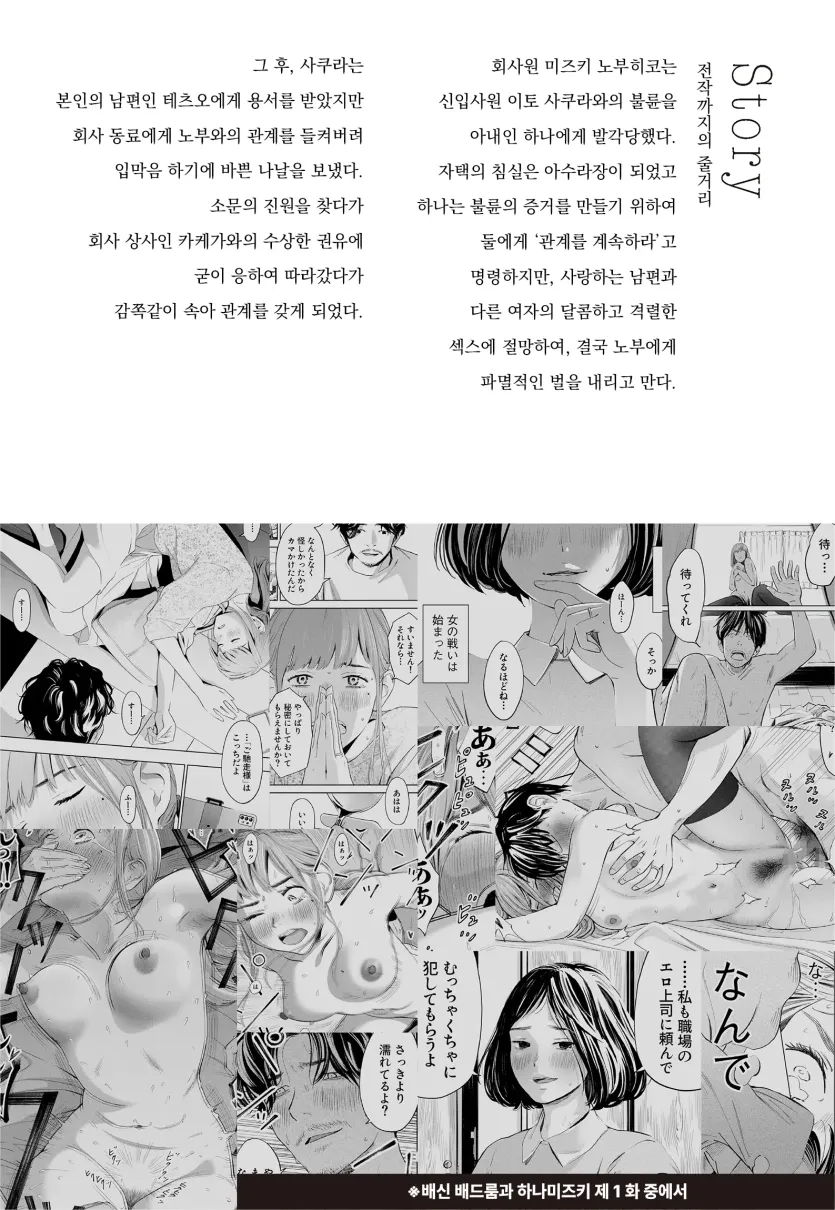 Story
전작까지의 줄거리
회사원 미즈키 노부히코는
신입사원 이토 사쿠라와의 불륜을
아내인 하나에게 발각당했다.
자택의 침실은 아수라장이 되었고
하나는 불륜의 증거를 만들기 위하여
둘에게 ‘관계를 계속하라’고
명령하지만, 사랑하는 남편과
다른 여자의 달콤하고 격렬한
섹스에 절망하여, 결국 노부에게
파멸적인 벌을 내리고 만다.
그 후, 사쿠라는
본인의 남편인 테츠오에게 용서를 받았지만
회사 동료에게 노부와의 관계를 들켜버려
입막음 하기에 바쁜 나날을 보냈다.
소문의 진원을 찾다가
회사 상사인 카케가와의 수상한 권유에
굳이 응하여 따라갔다가
감쪽같이 속아 관계를 갖게 되었다.
待っ…
待ってくれ
はーん…
そっか
なるほどね…
女の戦いは
始まった
なんとなく
怪しかったから
カマかけたんだ
すいません!
それなら…
やっぱり
秘密にしておいて
もらえませんか?
あはは
いい
すー…
すー…
…「ご馳走様」は
こっちだよ
ふー…
あぁ…
ああッ
ヌルッ
ヌルッ
はぁッ
はぁッ
は
さっきより
濡れてるよ?
な…
なんで
……私も職場の
エロ上司に頼んで
むっちゃくちゃに
犯してもらうよ
※배신 배드룸과 하나미즈키 제 1 화 중에서